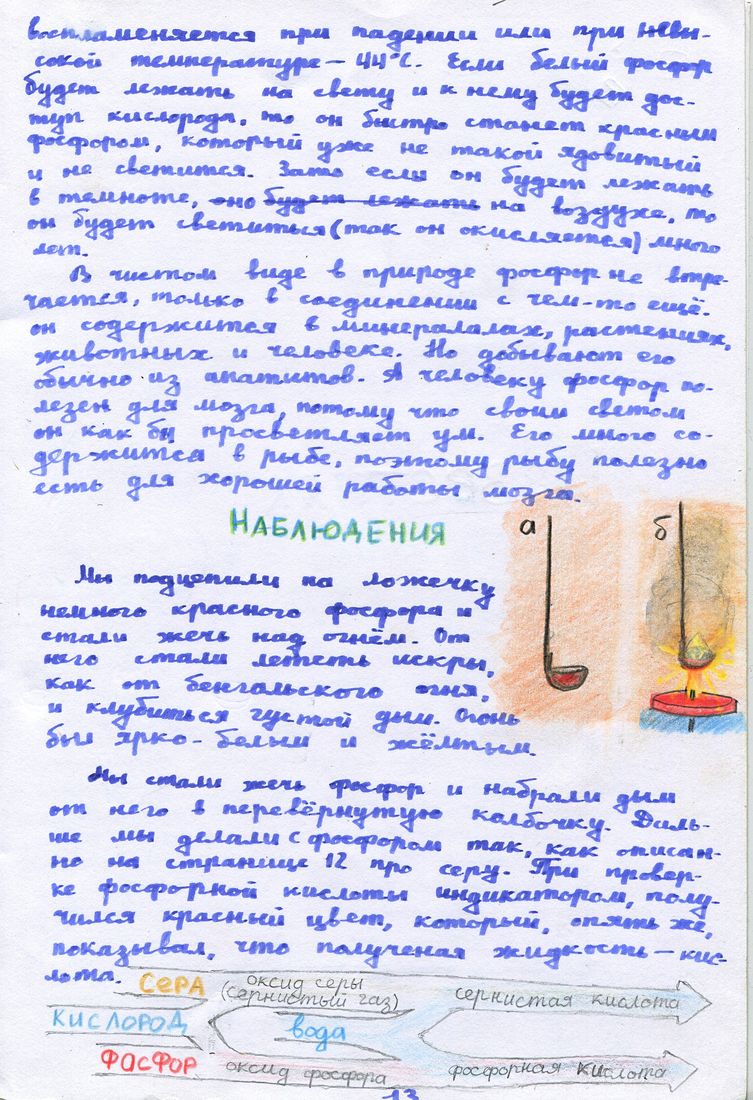 воспламеняется при падении или при невы-
сокой температуре – 44°С. Если белый фосфор
будет лежать на свету и к нему будет дос-
туп кислорода, то он быстро станет красным
фосфором, который уже не такой ядовитый
и не светится. Зато если он будет лежать
в темноте, оно будет лежать на воздухе, то
он будет светиться (так он окисляется) много
лет.
В чистом виде в природе фосфор не встре-
чается, только в соединении с чем-то ещё.
он содержится в минералалах, растениях,
животных и человеке. Но добывают его
обычно из апатитов. А человеку фосфор по-
лезен для мозга, потому что своим светом
он как бы просветляет ум. Его много со-
держится в рыбе, поэтому рыбу полезно
есть для хорошей работы мозга.
НАБЛЮДЕНИЯ
а
б
Мы подцепили на ложечку
немного красного фосфора и
стали жечь над огнём. От
него стали лететь искры,
как от бенгальского огня,
и клубиться густой дым. Огонь
был ярко-белым и жёлтым.
Мы стали жечь фосфор и набрали дым
от него в перевёрнутую колбочку. Даль-
ше мы делали с фосфором так, как описан-
но на странице 12 про серу. При провер-
ке фосфорной кислоты индикатором, полу-
чился красный цвет, который, опять же,
показывал, что полученая жидкость – кис-
лота.
СЕРА оксид серы
(сернистый газ) сернистая кислота
КИСЛОРОД вода
ФАСФОР оксид фосфора фосфорная кислота
13